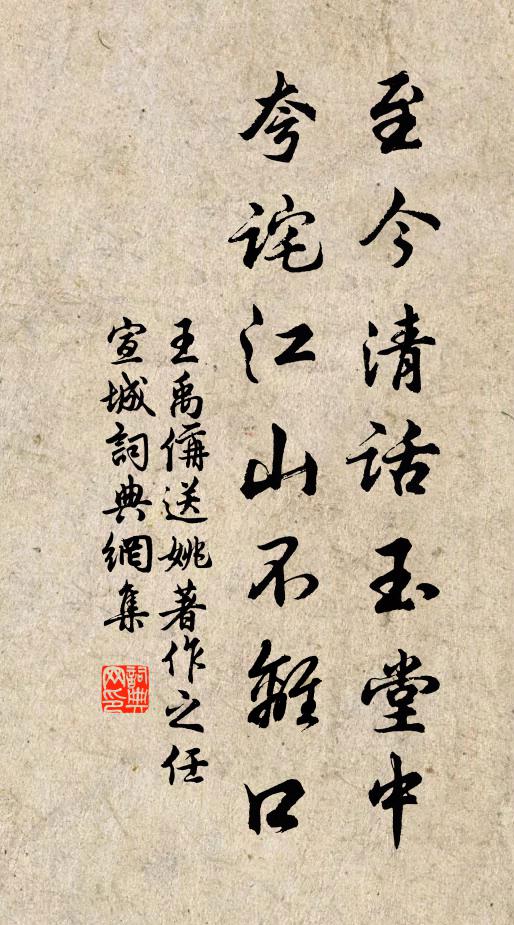 至今清話玉堂中
夸詫江山不離口
王禹偁送姚著作之任
宣城詞典網集
詞典
网印